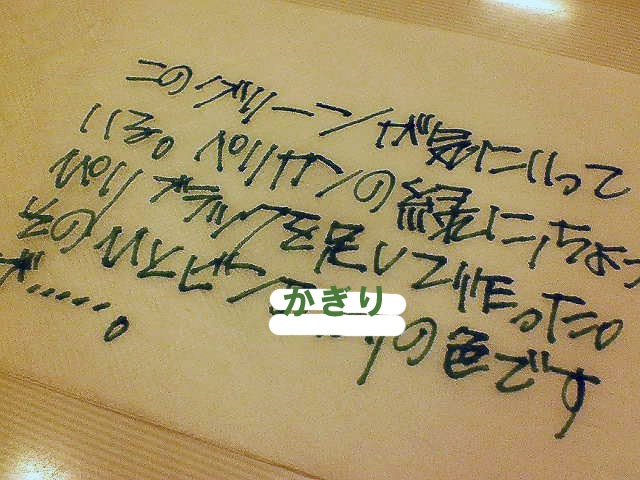 このグリーンが気に入って
いる。ペリカンの緑にちょっ
ぴりブラックを足して作った。
そのひとビンかぎりの色です
が……。